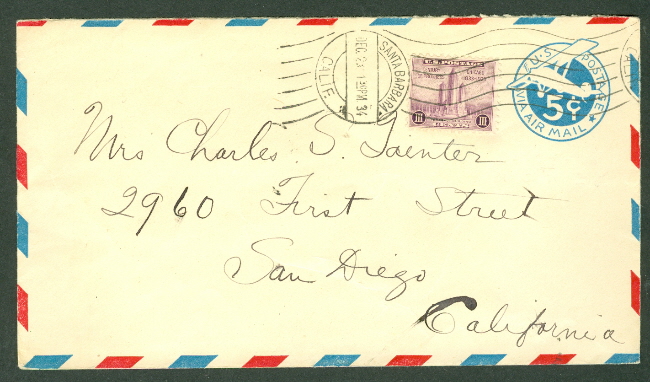 CALIF.
DEC 23
1 30 PM
34
SANTA BARBARA
U.S. POSTAGE
CENTS
III III
U.S. POSTAGE
5¢
VIA AIR MAIL
Mrs Charles S.
2960 First Street
San Diego
California